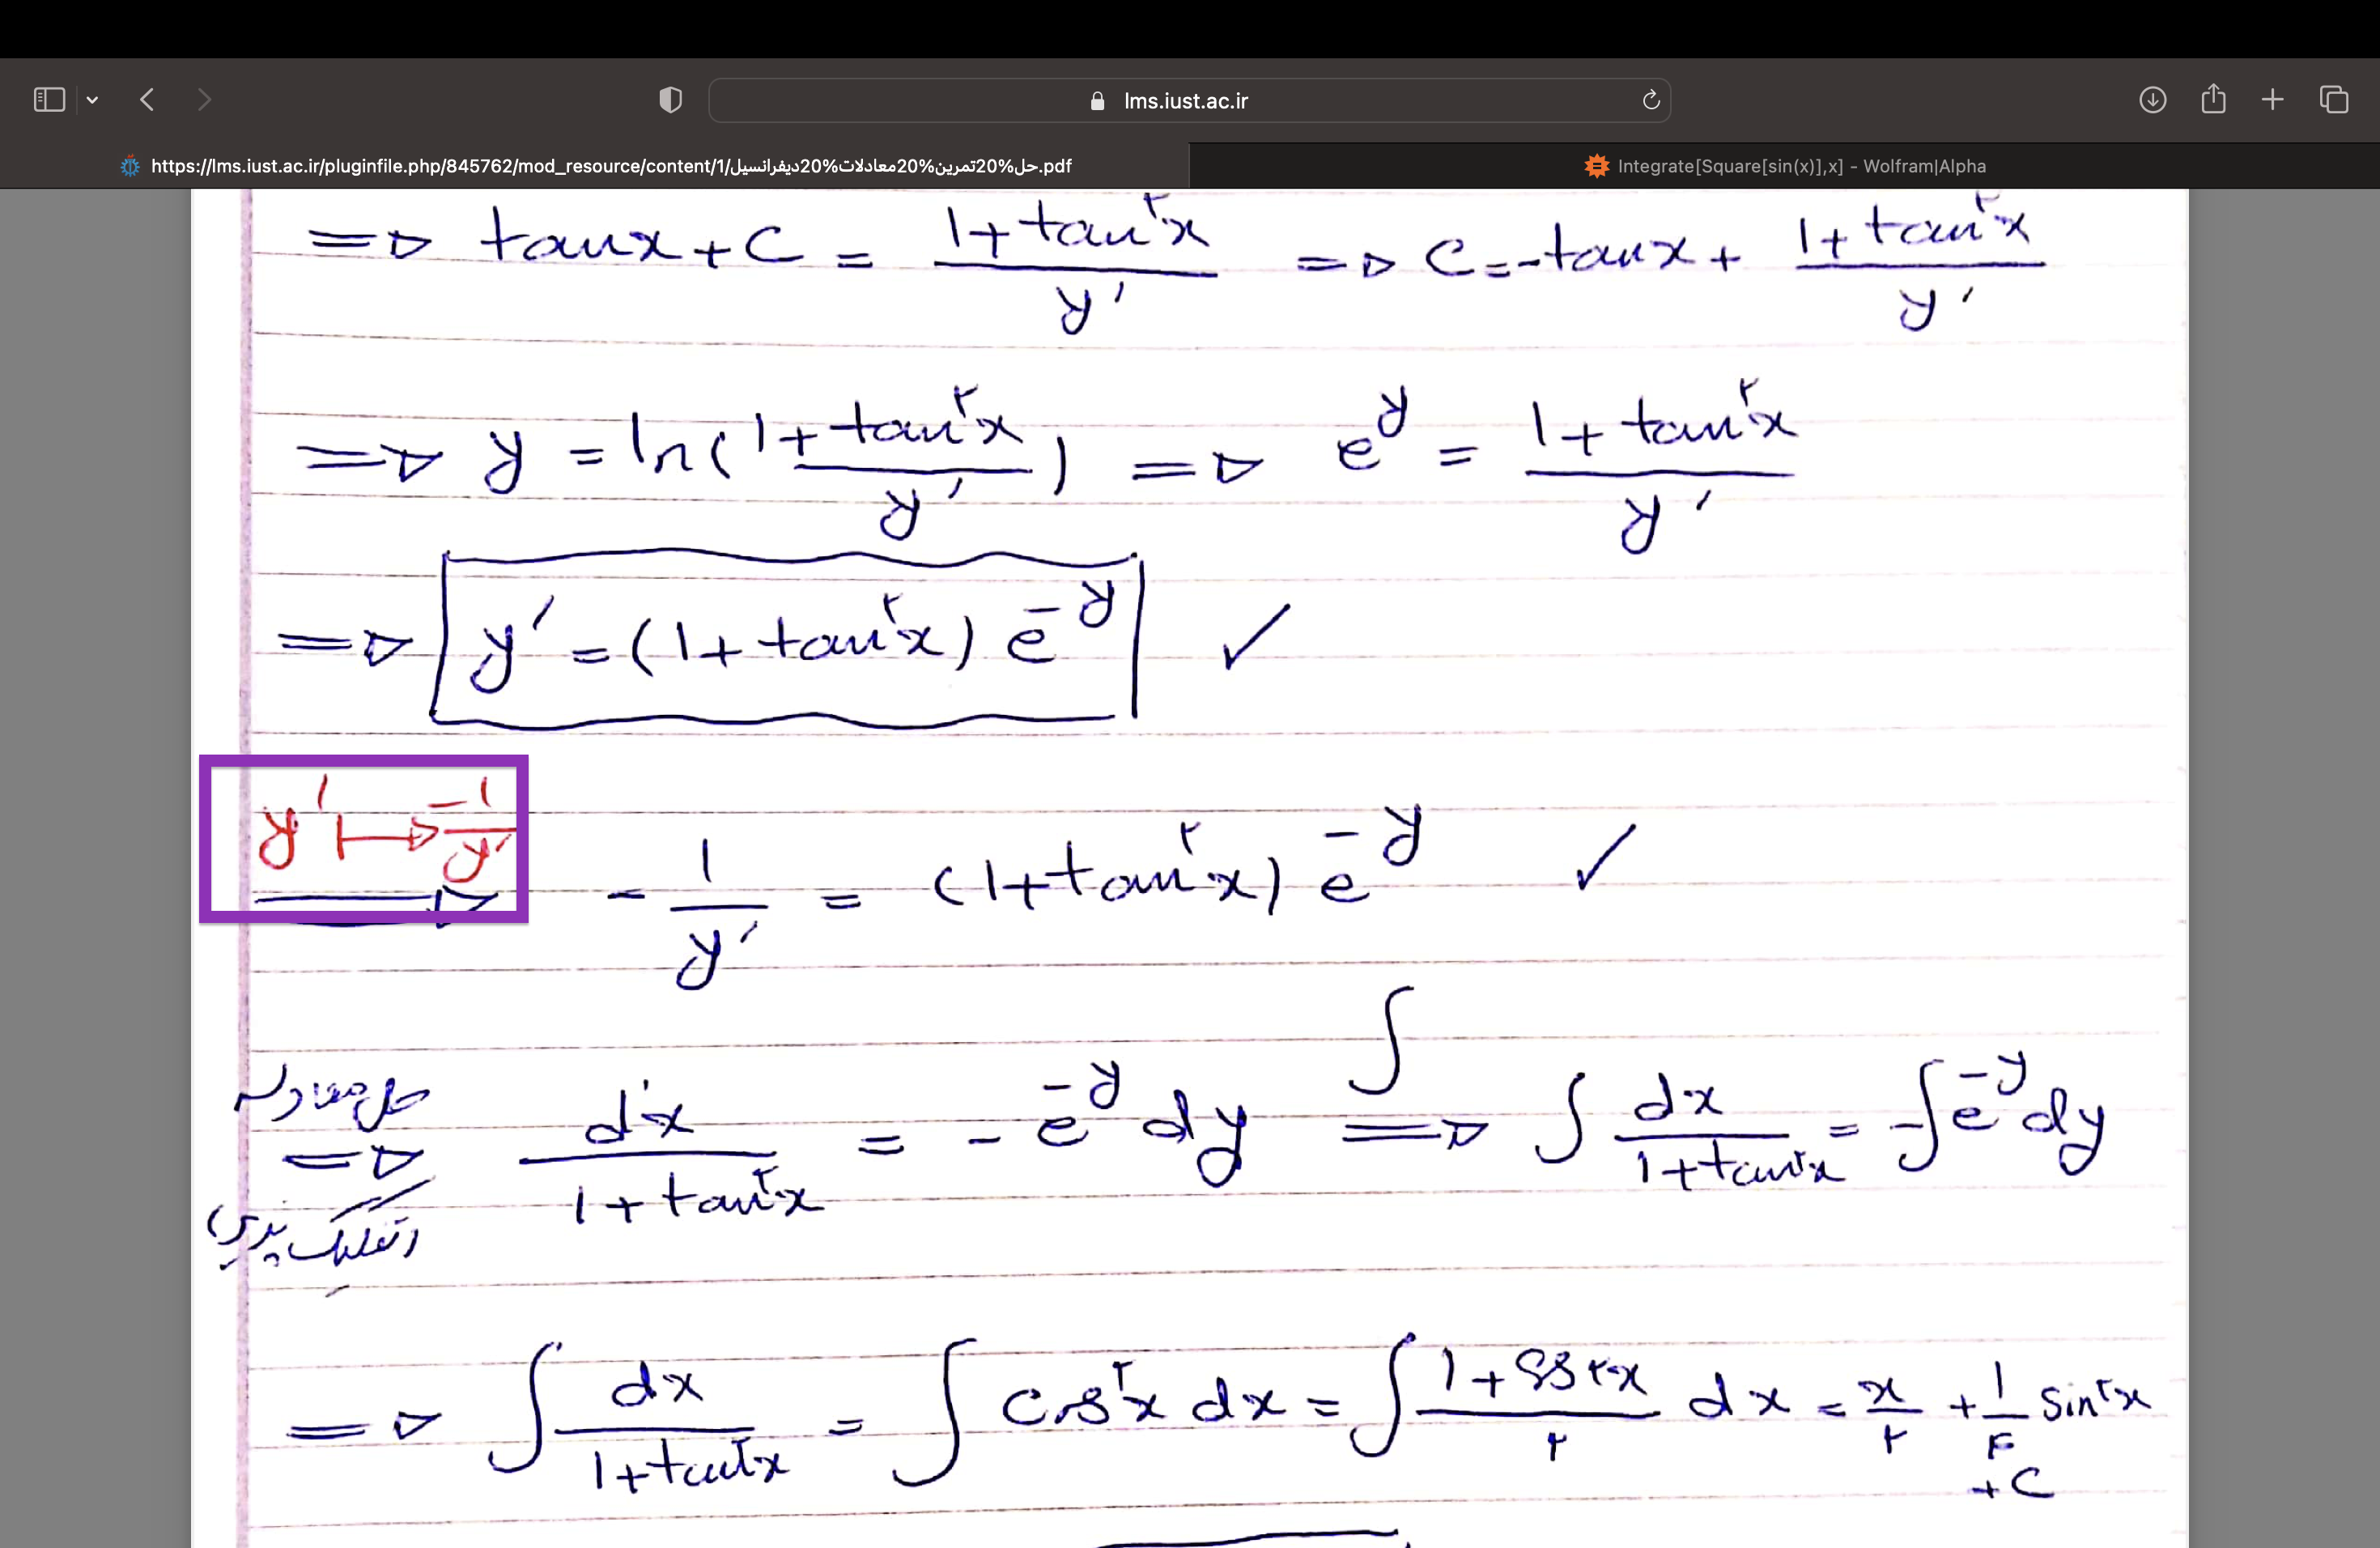 lms.iust.ac.ir
https://lms.iust.ac.ir/pluginfile.php/845762/mod_resource/content/1/حل%20تمرین%20معادلات%20دیفرانسیل.pdf
Integrate[Square[sin(x)],x] – Wolfram|Alpha
=> tanx + C = (1+tan²x)/y' => C = -tanx + (1+tan²x)/y'
=> y = ln((1+tan²x)/y') => e^y = (1+tan²x)/y'
=> y' = (1+tan²x) e^-y ✓
y' ↦ -1/y'
=> -1/y' = (1+tan²x) e^-y ✓
حل معادله
=> dx/(1+tan²x) = -e^-y dy ∫=> ∫ dx/(1+tan²x) = -∫ e^-y dy
تفکیک پذیر
=> ∫ dx/(1+tan²x) = ∫ cos²x dx = ∫ (1+cos۲x)/۲ dx = x/۲ + 1/۴ sin۲x
+C